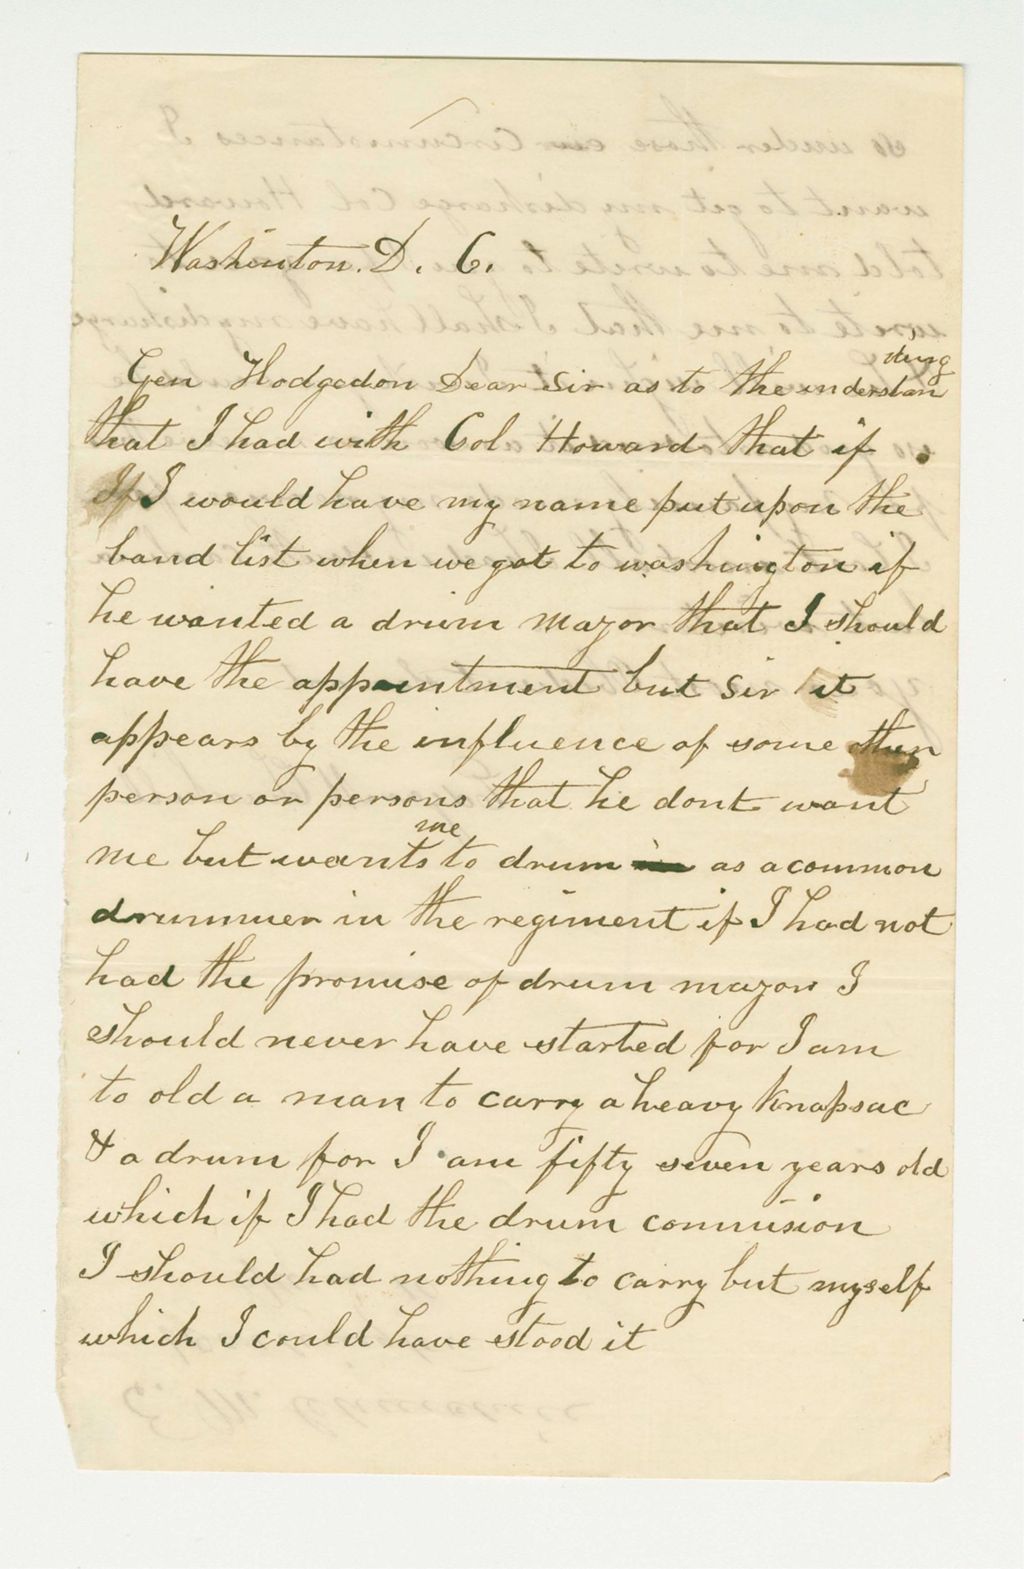 Washinton. D. C.
Gen Hodgedon Dear Sir as to the understanding
that I had with Col Howard that if
If I would have my name put upon the
band list when we got to washington if
he wanted a drum major that I should
have the appointment but sir it
appears by the influence of some other
person or persons that he dont want
me but wants me to drum as a common
drummer in the regiment if I had not
had the promise of drum major I
should never have started for I am
to old a man to carry a heavy knapsac
& a drum for I am fifty seven years old
which if I had the drum commision
I should had nothing to carry but myself
which I could have stood it